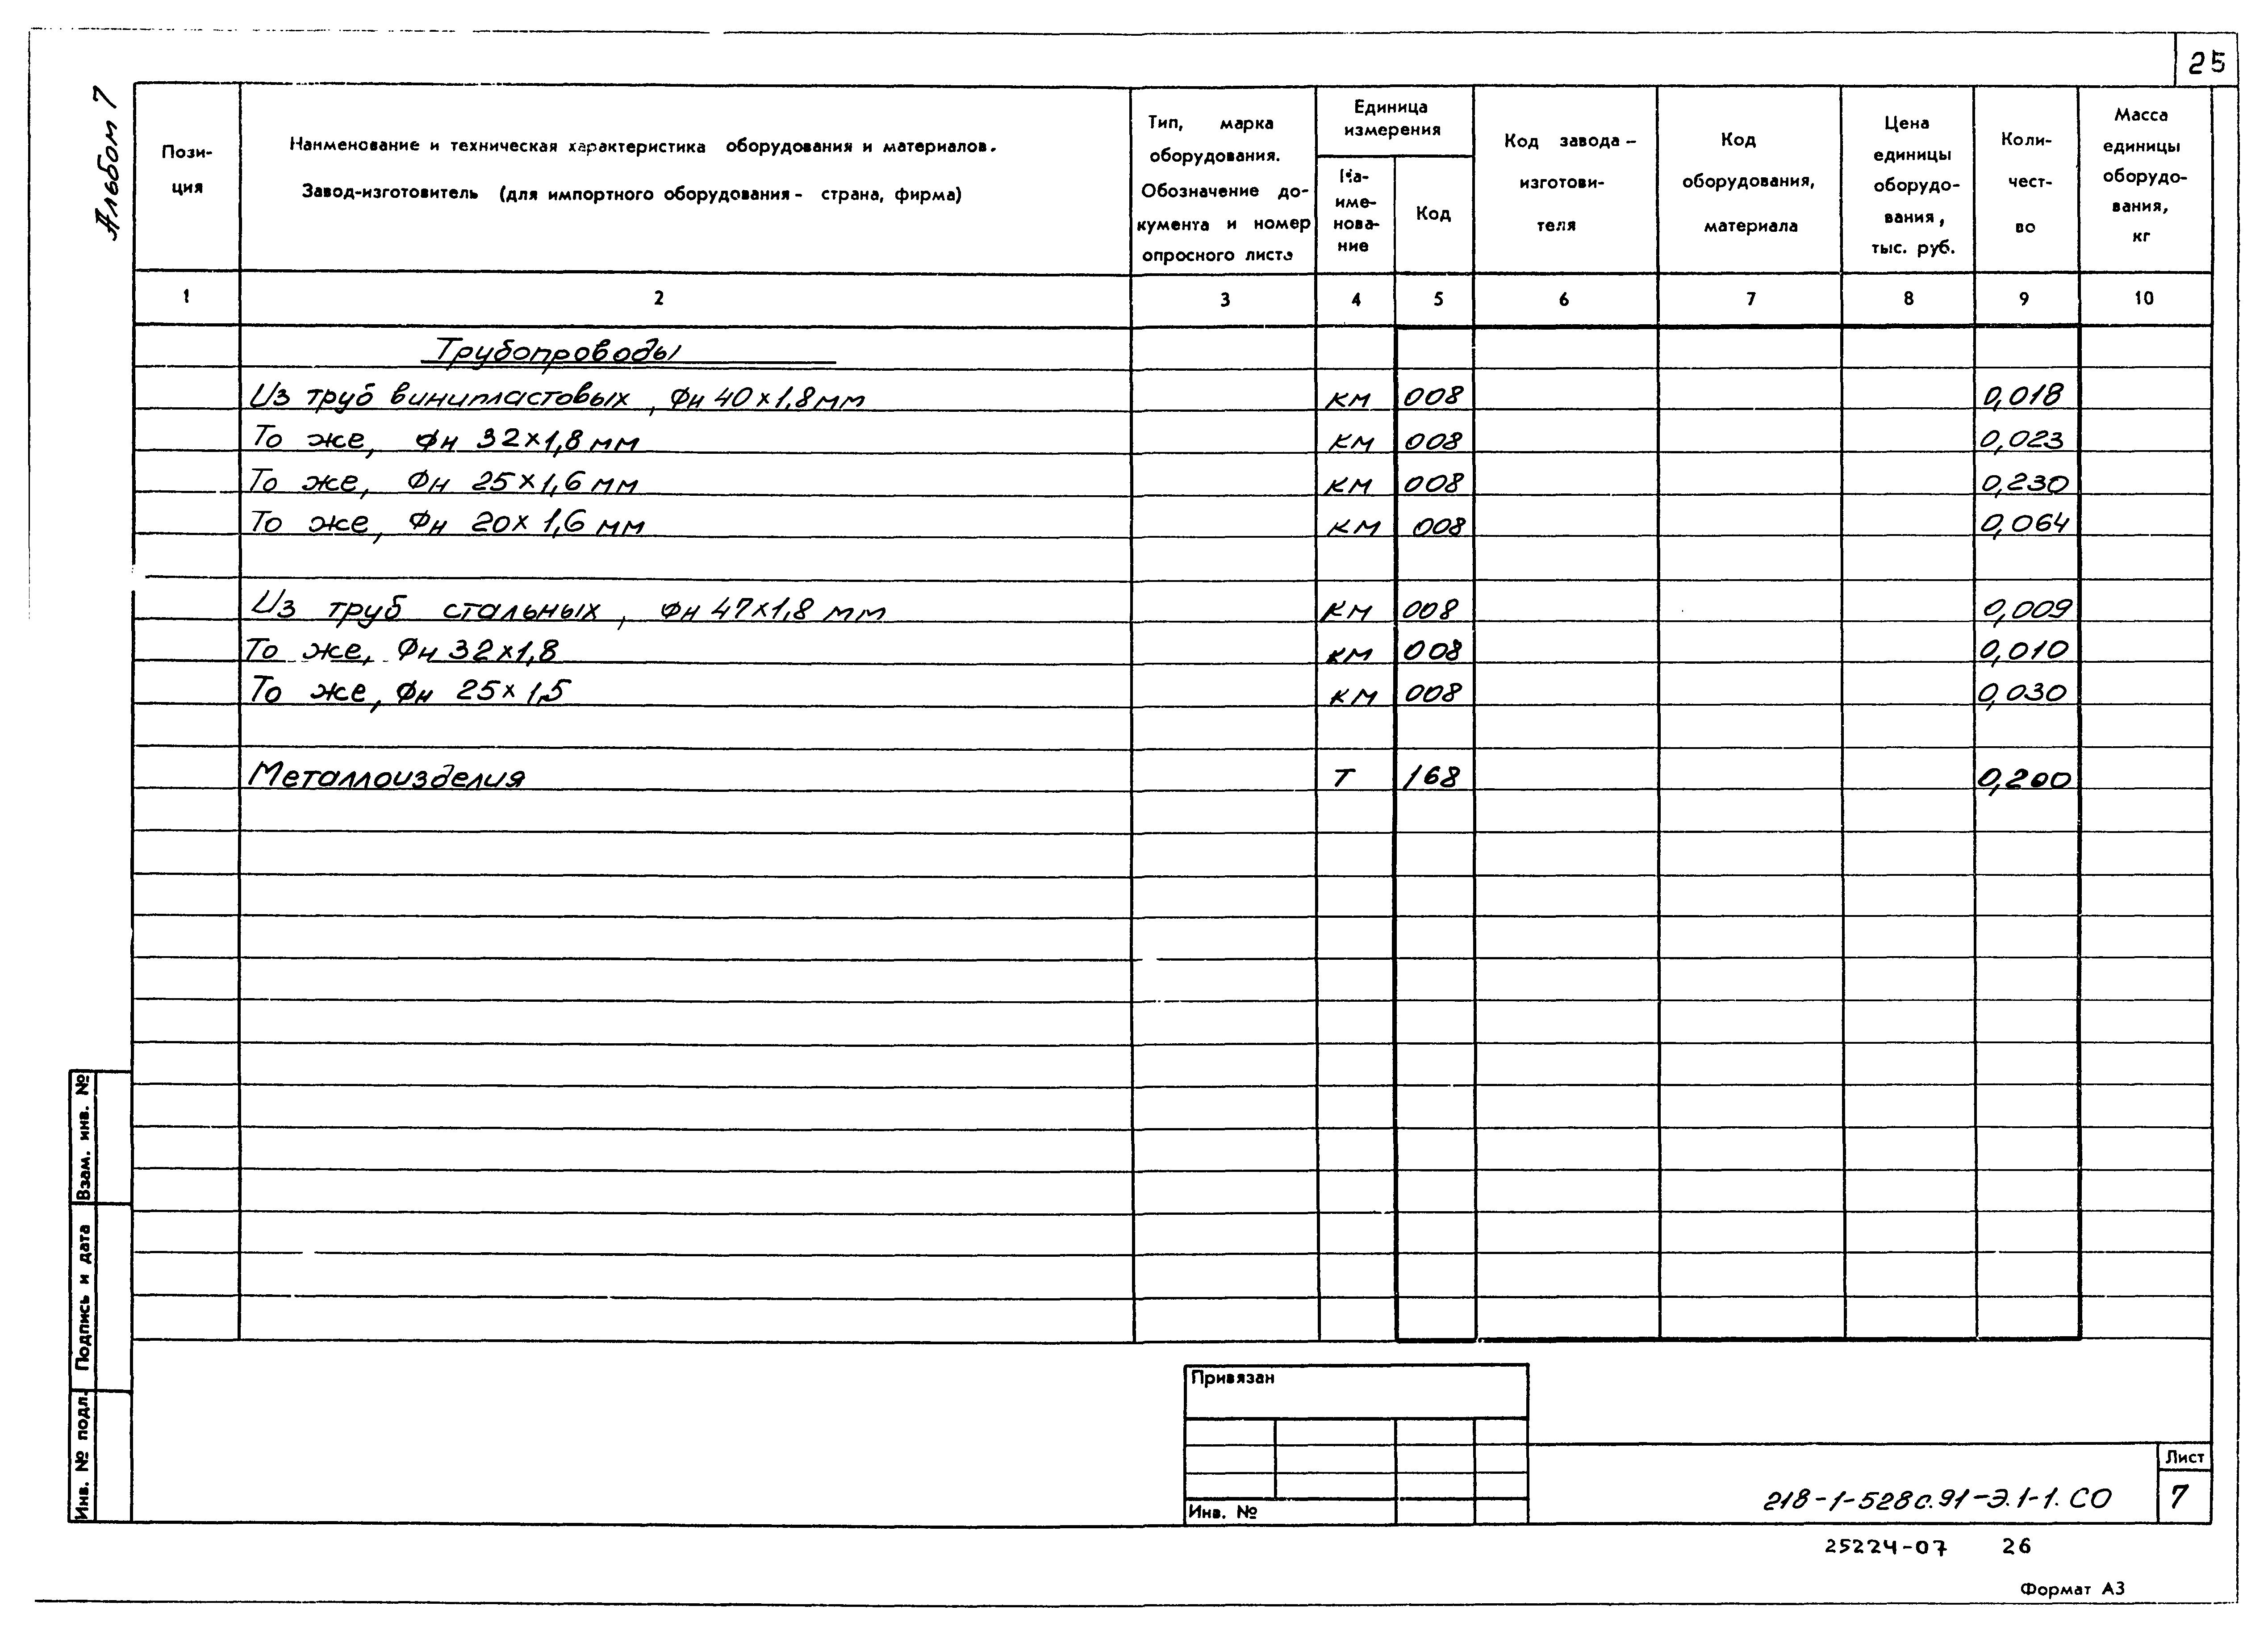 25
Альбом 7
Пози-
ция
Наименование и техническая характеристика оборудования и материалов.
Завод-изготовитель (для импортного оборудования - страна, фирма)
Тип, марка
оборудования.
Обозначение до-
кумента и номер
опросного листа
Единица
измерения
На-
име-
нова-
ние
Код
Код завода -
изготови-
теля
Код
оборудования,
материала
Цена
единицы
оборудо-
вания,
тыс. руб.
Коли-
чест-
во
Масса
единицы
оборудо-
вания,
кг
1 2 3 4 5 6 7 8 9 10
Трубопроводы
Из труб винипластовых, Фн 40×1,8 мм км 008 0,018
То же, Фн 32×1,8 мм км 008 0,023
То же, Фн 25×1,6 мм км 008 0,230
То же, Фн 20×1,6 мм км 008 0,064
Из труб стальных, Фн 47×1,8 мм км 008 0,009
То же, Фн 32×1,8 км 008 0,010
То же, Фн 25×1,5 км 008 0,030
Металлоизделия т 168 0,200
Взам. инв. №
Подпись и дата
Инв. № подл.
Привязан
Инв. №
218-1-528с.91-Э.1-1.СО
Лист
7
25224-07 26
Формат А3